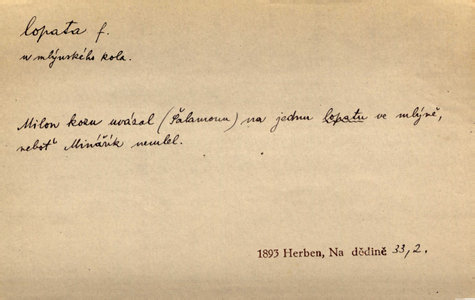 lopata f.
u mlýnského kola.
Milon kozu uvázal (Šalamoun) na jednu lopatu ve mlýně,
neboť Minářík nemlel.
1893 Herben, Na dědině 33,2.